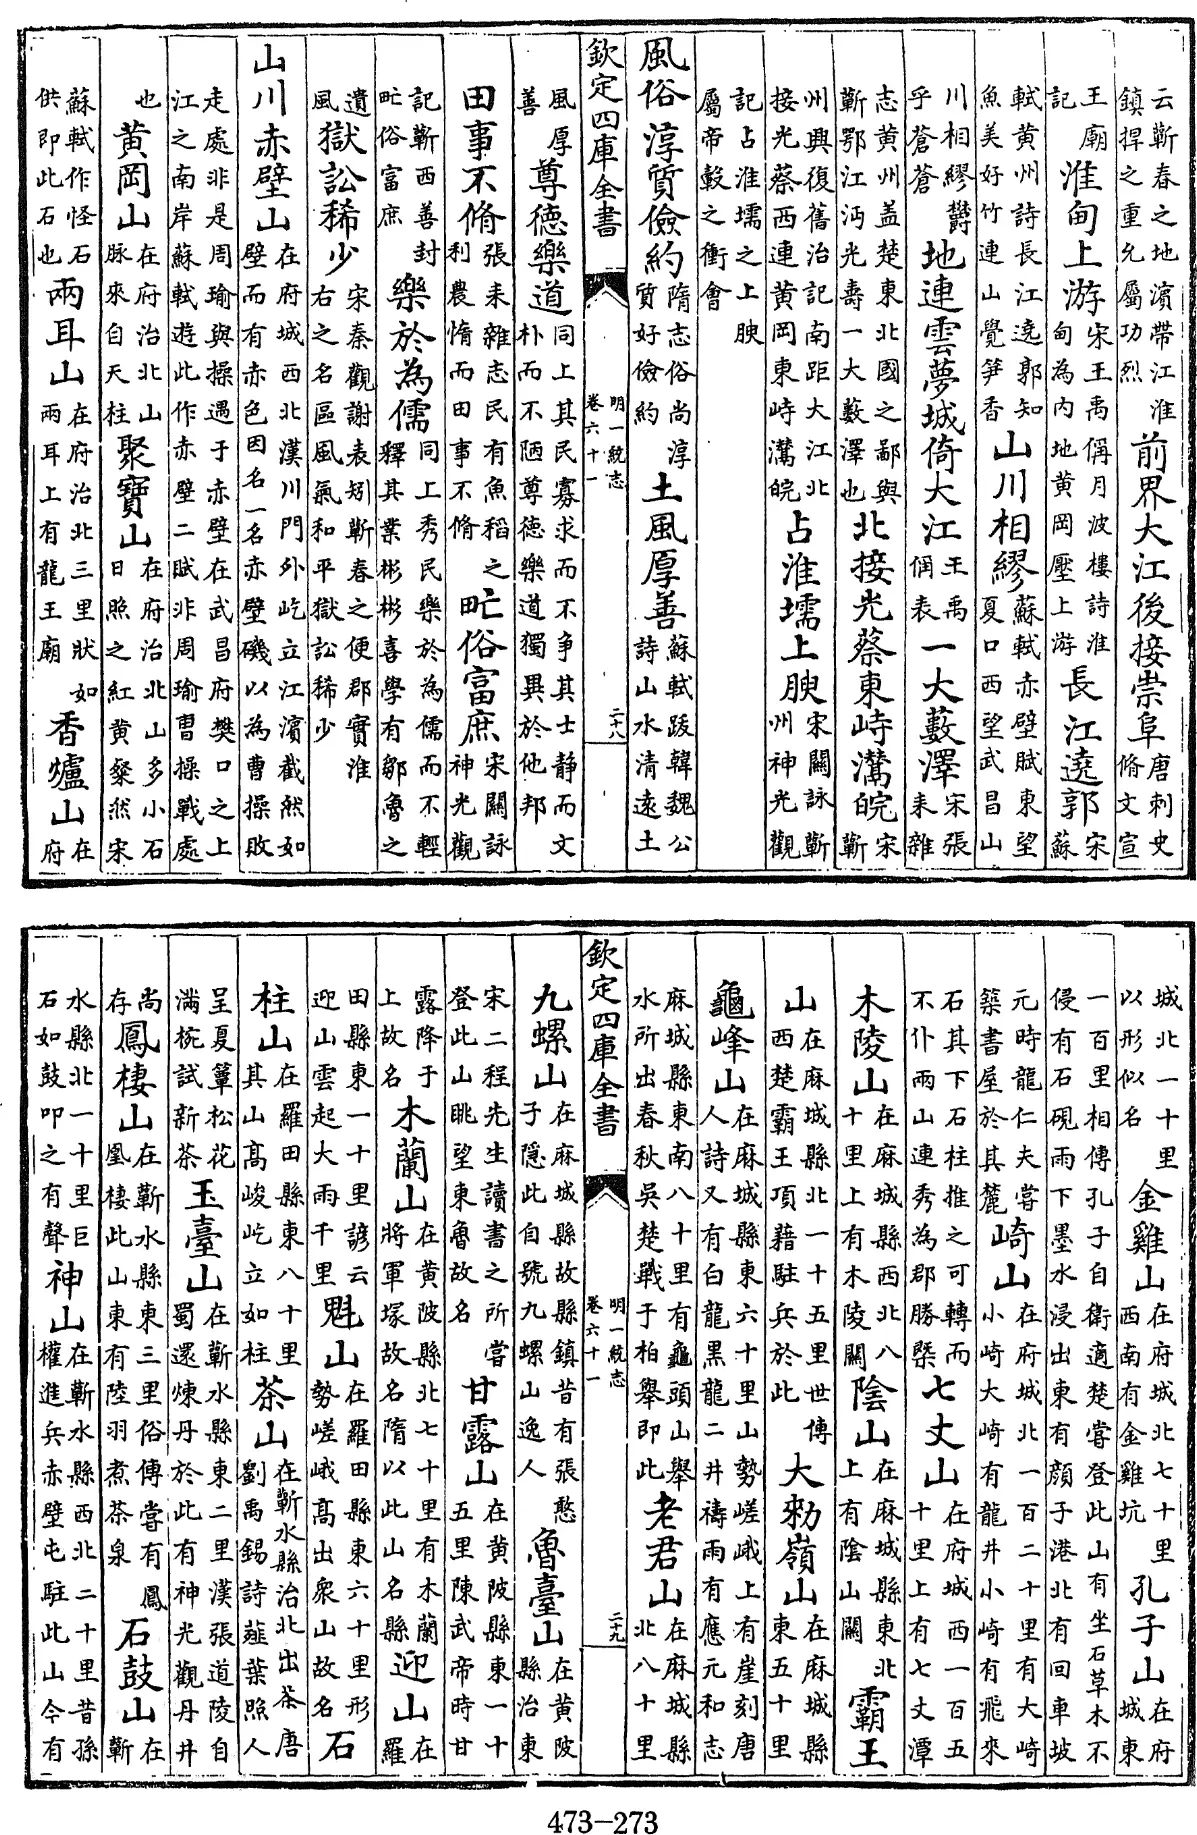 云蘄春之地濵帶江淮鎮捍之重允屬功烈前界大江後接崇阜唐刺史脩文宣
王廟記淮甸上游宋王禹偁月波樓詩淮甸為内地黄岡壓上游長江遶郭宋蘇
軾黄州詩長江遶郭知魚美好竹連山覺笋香山川相繆蘇軾赤壁賦東望夏口西望武昌山
川相繆欝乎蒼蒼地連雲夢城倚大江王禹偁表一大藪澤宋張耒雜
志黄州盖楚東北國之鄙與蘄鄂江沔光壽一大藪澤也北接光蔡東峙灊皖宋蘄
州興復舊治記南距大江北接光蔡西連黄岡東峙灊皖占淮壖上腴宋闗詠蘄州神光觀
記占淮壖之上腴屬帝轂之衝會
風俗淳質儉約隋志俗尚淳質好儉約土風厚善蘇軾跋韓魏公詩山水清逺土
欽定四庫全書 明一統志 卷六十一 二十八
風厚善尊德樂道同上其民寡求而不争其士静而文朴而不陋尊德樂道獨異於他邦
田事不脩張耒雜志民有魚稻之利農惰而田事不脩甿俗富庶宋闗詠神光觀
記蘄西善封甿俗富庶樂於為儒同上秀民樂於為儒而不輕釋其業彬彬喜學有鄒魯之
遺風獄訟稀少宋秦觀謝表矧蘄春之便郡實淮右之名區風氣和平獄訟稀少
山川赤壁山在府城西北漢川門外屹立江濵截然如壁而有赤色因名一名赤壁磯以為曹操敗
走處非是周瑜與操遇于赤壁在武昌府樊口之上江之南岸蘇軾遊此作赤壁二賦非周瑜曹操戰處
也黄岡山在府治北山脉來自天柱聚寶山在府治北山多小石日照之紅黄粲然宋
蘇軾作怪石供即此石也兩耳山在府治北三里狀如兩耳上有龍王廟香爐山在府
城北一十里以形似名金雞山在府城北七十里西南有金雞坑孔子山在府城東
一百里相傳孔子自衛適楚嘗登此山有坐石草木不侵有石硯雨下墨水浸出東有顔子港北有回車坡
元時龍仁夫嘗築書屋於其麓崎山在府城北一百二十里有大崎小崎大崎有龍井小崎有飛來
石其下石柱推之可轉而不仆兩山連秀為郡勝槩七丈山在府城西一百五十里上有七丈潭
木陵山在麻城縣西北八十里上有木陵闗陰山在麻城縣東北上有陰山闗霸王
山在麻城縣北一十五里世傳西楚霸王項籍駐兵於此大勑嶺山在麻城縣東五十里
龜峰山在麻城縣東六十里山勢嵯峨上有崖刻唐人詩又有白龍黑龍二井禱雨有應元和志
麻城縣東南八十里有龜頭山舉水所出春秋吳楚戰于柏舉即此老君山在麻城縣北八十里
欽定四庫全書 明一統志 卷六十一 二十九
九螺山在麻城縣故縣鎮昔有張憨子隱此自號九螺山逸人魯臺山在黄陂縣治東
宋二程先生讀書之所嘗登此山眺望東魯故名甘露山在黄陂縣東一十五里陳武帝時甘
露降于上故名木蘭山在黄陂縣北七十里有木蘭將軍塚故名隋以此山名縣迎山在羅
田縣東一十里諺云迎山雲起大雨千里魁山在羅田縣東六十里形勢嵯峨髙出衆山故名石
柱山在羅田縣東八十里其山髙峻屹立如柱茶山在蘄水縣治北出茶唐劉禹錫詩薤葉照人
呈夏簟松花滿椀試新茶玉臺山在蘄水縣東二里漢張道陵自蜀還煉丹於此有神光觀丹井
尚存鳳棲山在蘄水縣東三里俗傳嘗有鳳凰棲此山東有陸羽煮茶泉石鼓山在蘄
水縣北一十里巨石如鼓叩之有聲神山在蘄水縣西北二十里昔孫權進兵赤壁屯駐此山今有
473-273